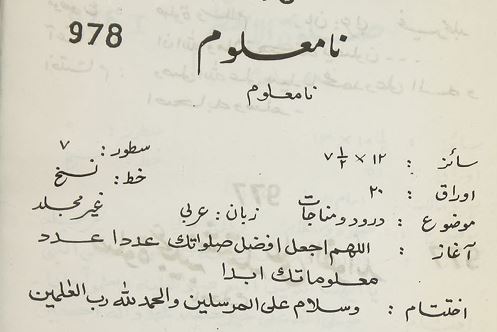 978
نامعلوم
نامعلوم
سائز : ۱۲ × ۷ ۱/۲ سطور : ۷
اوراق : ۲۰ خط : نسخ
موضوع : درود ومناجات زبان : عربی غیر مجلد
آغاز : اللهم اجعل افضل صلواتك عددا عدد
معلوماتك ابدا
اختتام : وسلام علی المرسلین والحمد للہ رب العٰلمین